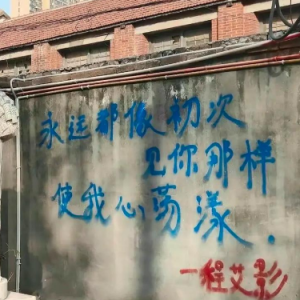 永远都像初次
见你那样
使我心荡漾.
一程艾影